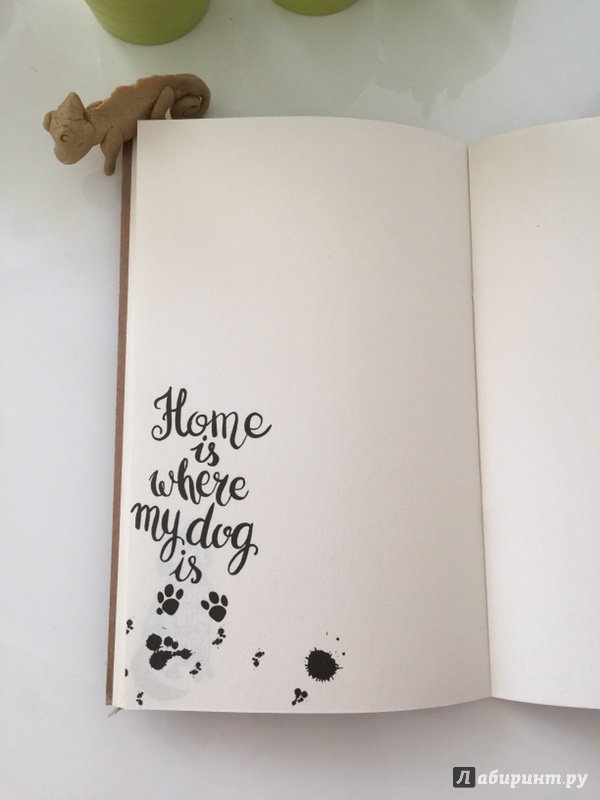 Home
is
where
my dog
is
Лабиринт.ру